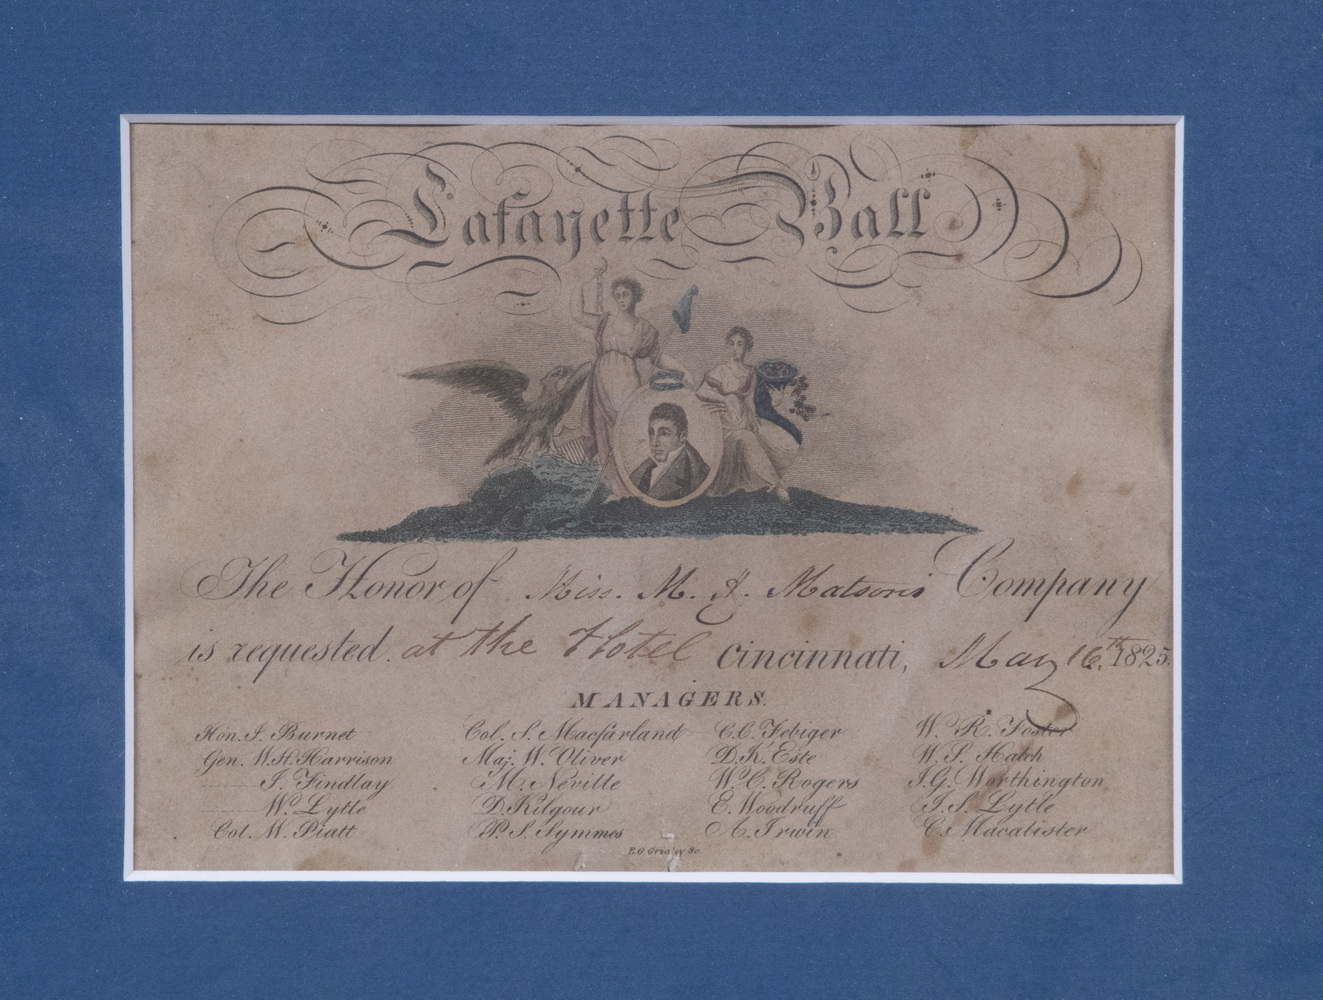 Lafayette Ball
The Honor of Miss. M. A. Matson's Company
is requested at the Hotel Cincinnati, May 16.th 1825.
MANAGERS.
Hon. J. Burnet
Gen. W.H. Harrison
J. Findlay
W. Lytle
Col. W. Piatt
Col. S. Macfarland
Maj. W. Oliver
M. Neville
D. Kilgour
P. S. Symmes
C.C. Febiger
D.K. Este
W.C. Rogers
E. Woodruff
A. Irwin
W. R. Foster
W. S. Hatch
J.G. Worthington
J. S. Lytle
C. Macalister
E.G. Gridley Sc.